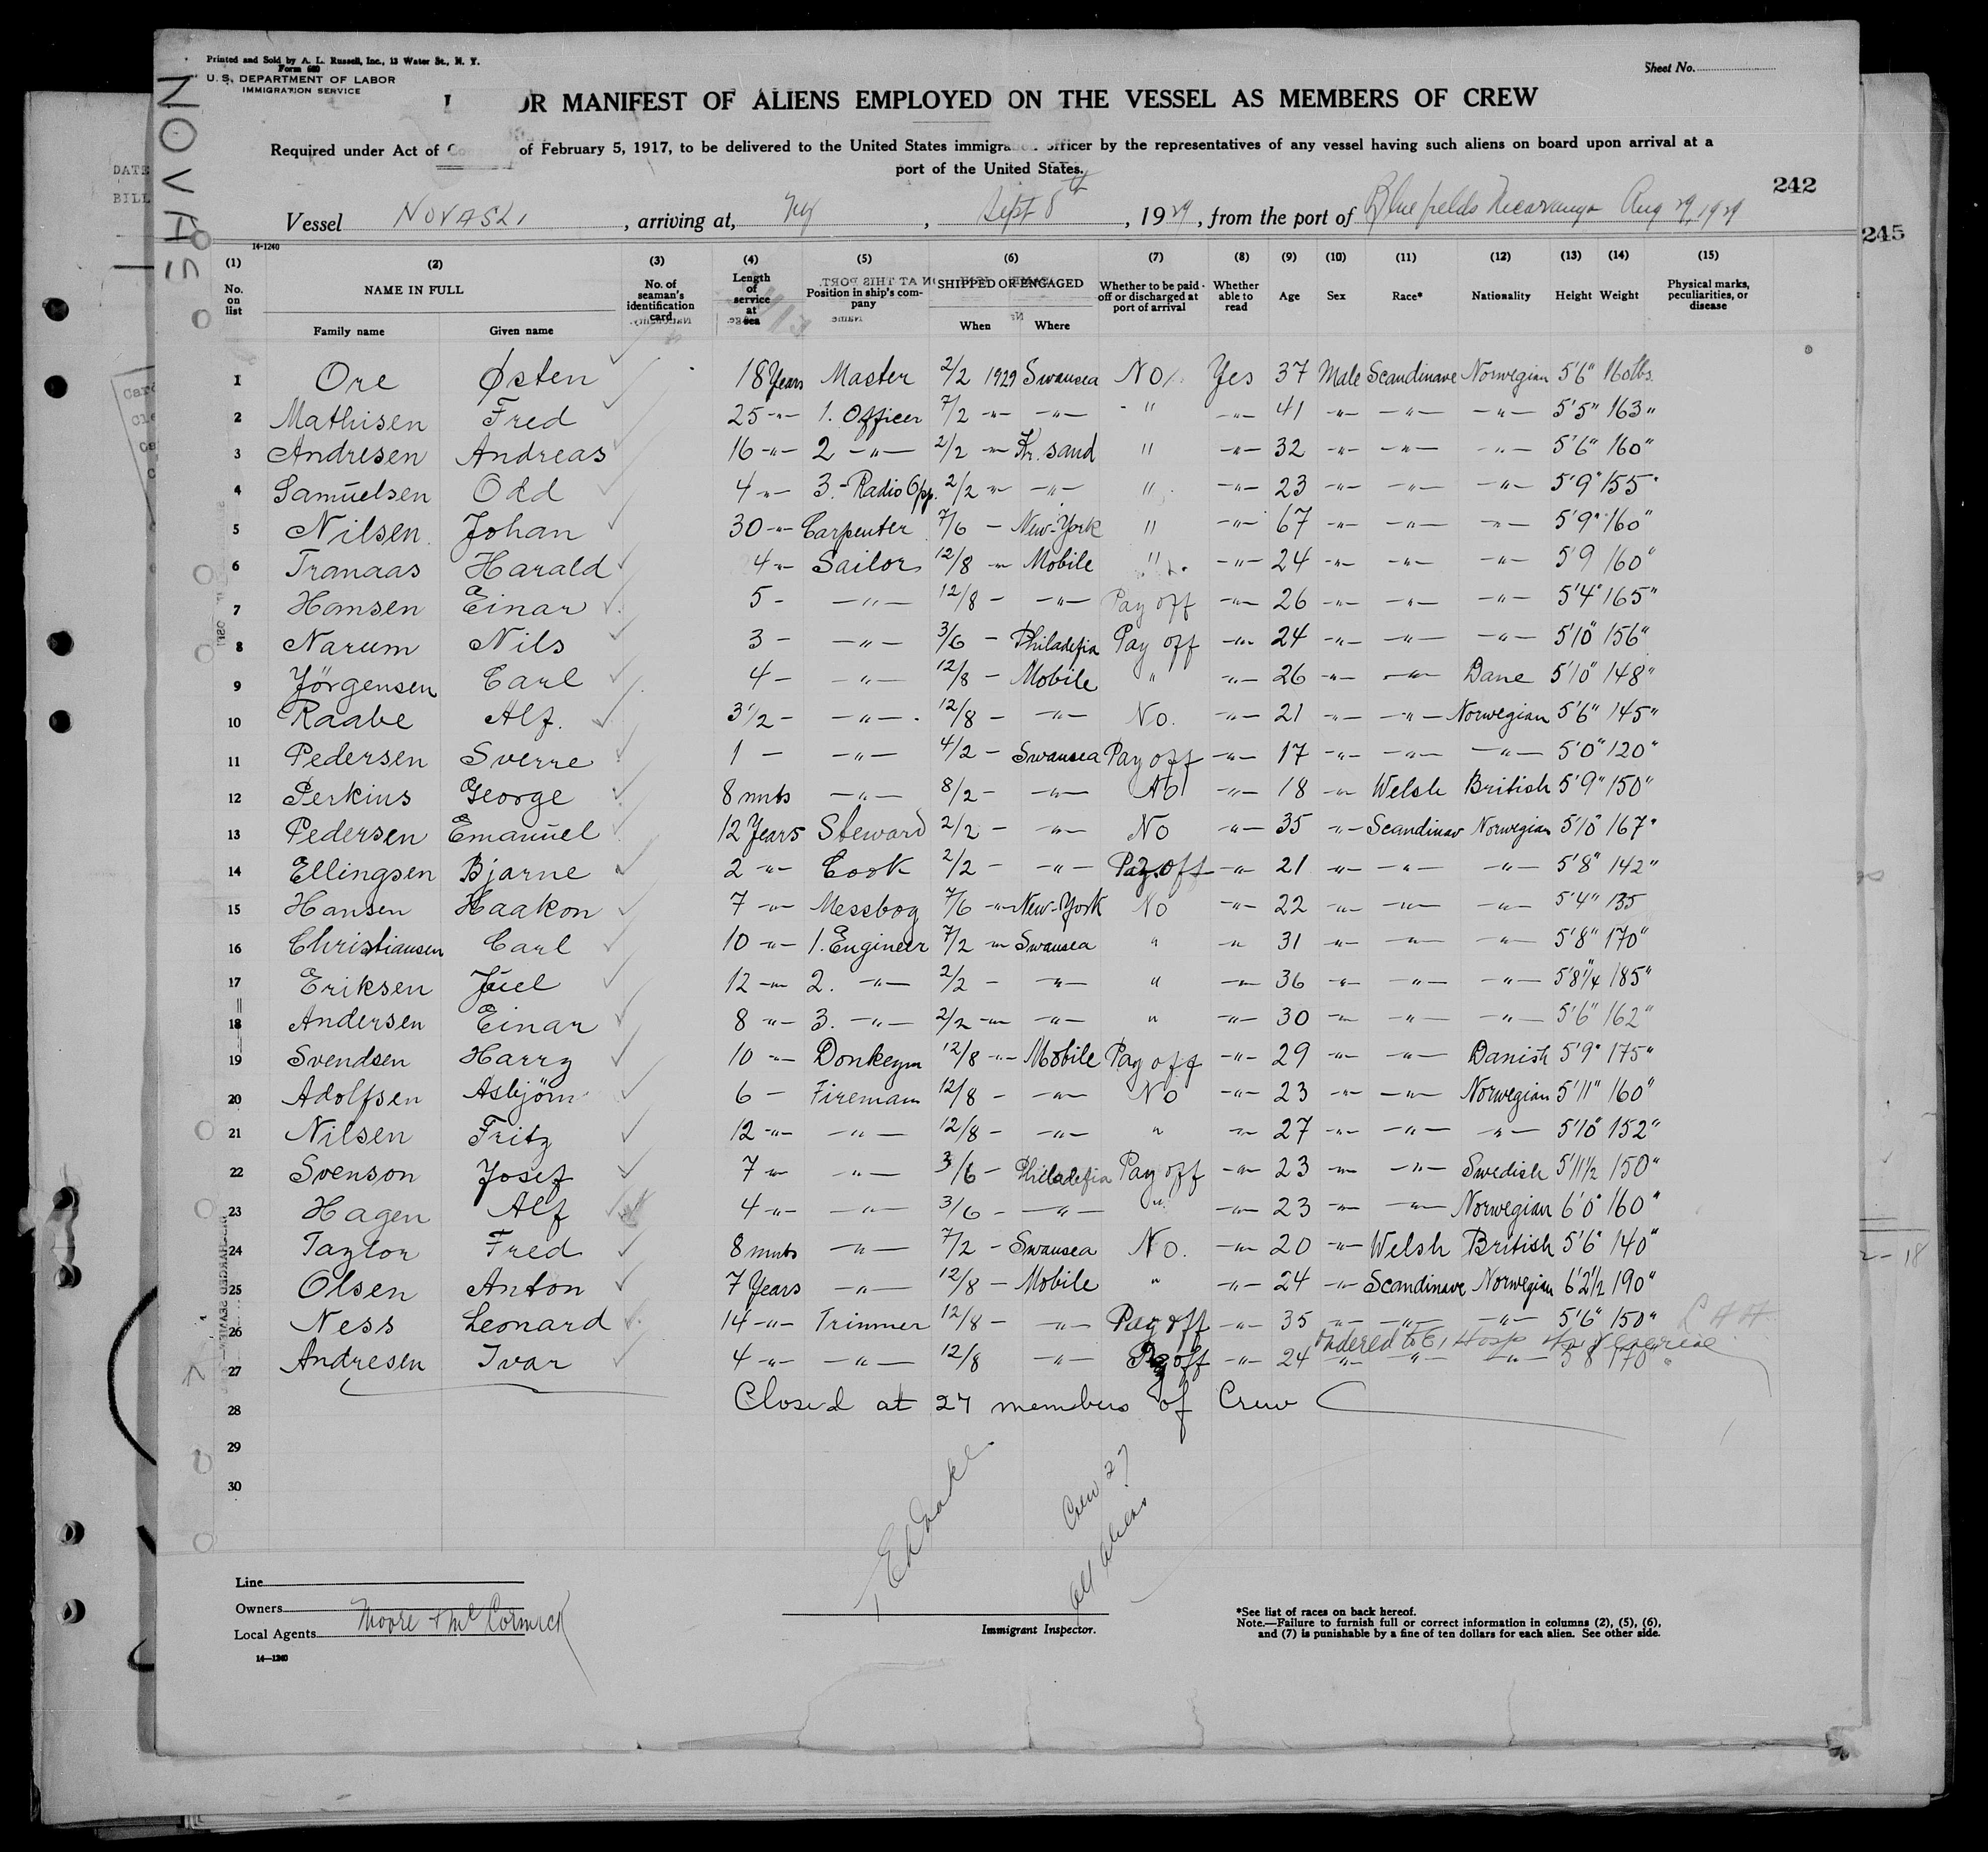 Printed and Sold by A. L. Russell, Inc., 13 Water St., N. Y.
Form 680
U. S. DEPARTMENT OF LABOR
IMMIGRATION SERVICE
Sheet No.
OR MANIFEST OF ALIENS EMPLOYED ON THE VESSEL AS MEMBERS OF CREW
Required under Act of of February 5, 1917, to be delivered to the United States officer by the representatives of any vessel having such aliens on board upon arrival at a
port of the United States.
242
Vessel NOVASLI, arriving at, NY, Sept 8th, 1929, from the port of Bluefields Nicaragua Aug 29, 1929
245
14-1240
(1) (2) (3) (4) (5) (6) (7) (8) (9) (10) (11) (12) (13) (14) (15)
No. on list NAME IN FULL No. of seaman's identification card Length of service at sea Position in ship's company SHIPPED OR ENGAGED Whether to be paid off or discharged at port of arrival Whether able to read Age Sex Race* Nationality Height Weight Physical marks, peculiarities, or disease
Family name Given name When Where
1 Ore Østen 18 Years Master 2/2 1929 Swansea No Yes 37 Male Scandinave Norwegian 5'6" 160 lbs.
2 Mathisen Fred 25 -"- 1. Officer 7/2 -"- -"- " -"- 41 -"- -"- -"- 5'5" 163 "
3 Andresen Andreas 16 -"- 2 -"- 2/2 -"- Kr. sand " -"- 32 -"- -"- -"- 5'6" 160 "
4 Samuelsen Odd 4 -"- 3. - Radio Opp. 2/2 -"- -"- " -"- 23 -"- -"- -"- 5'9" 155 "
5 Nilsen Johan 30 -"- Carpenter 7/6 - New-York " -"- 67 -"- -"- -"- 5'9" 160 "
6 Tranaas Harald 4 -"- Sailor 12/8 -"- Mobile " -"- 24 -"- -"- -"- 5'9 160 "
7 Hansen Einar 5 - -"- 12/8 - -"- Pay off -"- 26 -"- -"- -"- 5'4" 165 "
8 Narum Nils 3 - -"- 3/6 - Philadefia Pay off -"- 24 -"- -"- -"- 5'10" 156 "
9 Jörgensen Carl 4 - -"- 12/8 - Mobile " -"- 26 -"- -"- Dane 5'10" 148 "
10 Raabe Alf. 3 1/2 - -"- 12/8 - -"- No. -"- 21 -"- -"- Norwegian 5'6" 145 "
11 Pedersen Sverre 1 - -"- 4/2 - Swansea Pay off -"- 17 -"- -"- -"- 5'0" 120 "
12 Perkins George 8 mnts -"- 8/2 - -"- No -"- 18 -"- Welsh British 5'9" 150 "
13 Pedersen Emanuel 12 Years Steward 2/2 - -"- No -"- 35 -"- Scandinav Norwegian 5'10" 167 "
14 Ellingsen Bjarne 2 -"- Cook 2/2 - -"- Pay off -"- 21 -"- -"- -"- 5'8" 142 "
15 Hansen Haakon 7 -"- Messboy 7/6 -"- New-York No -"- 22 -"- -"- -"- 5'4" 135
16 Christiansen Carl 10 -"- 1. Engineer 7/2 -"- Swansea " " 31 -"- -"- -"- 5'8" 170 "
17 Eriksen Juel 12 -"- 2. -"- 2/2 - -"- " -"- 36 -"- -"- -"- 5'8 1/4 185 "
18 Andersen Einar 8 -"- 3. -"- 2/2 -"- -"- " -"- 30 -"- -"- -"- 5'6" 162 "
19 Svendsen Harry 10 -"- Donkeym 12/8 -"- Mobile Pay off -"- 29 -"- -"- Danish 5'9" 175 "
20 Adolfsen Asbjörn 6 - Fireman 12/8 - -"- No -"- 23 -"- -"- Norwegian 5'11" 160 "
21 Nilsen Fritz 12 -"- -"- 12/8 - -"- " -"- 27 -"- -"- -"- 5'10" 152 "
22 Svenson Josef 7 -"- -"- 3/6 - Philadefia Pay off -"- 23 -"- -"- Swedish 5'11 1/2 150 "
23 Hagen Alf 4 -"- -"- 3/6 - -"- " -"- 23 -"- -"- Norwegian 6'0" 160 "
24 Taylor Fred 8 mnts -"- 7/2 - Swansea No. -"- 20 -"- Welsh British 5'6" 140 "
25 Olsen Anton 7 Years -"- 12/8 - Mobile " -"- 24 -"- Scandinave Norwegian 6'2 1/2 190 "
26 Ness Leonard 14 -"- Trimmer 12/8 - -"- Pay off -"- 35 -"- -"- -"- 5'6" 150 "
Ordered to EI Hosp
27 Andresen Ivar 4 -"- -"- 12/8 -"- Pay off -"- 24 -"- -"- -"- 5'8 170 "
28 Closed at 27 members of Crew
29
30
Crew 27
all aliens
Line
Owners
Local Agents Moore & McCormick
Immigrant Inspector.
14—1240
*See list of races on back hereof.
Note.—Failure to furnish full or correct information in columns (2), (5), (6),
and (7) is punishable by a fine of ten dollars for each alien. See other side.